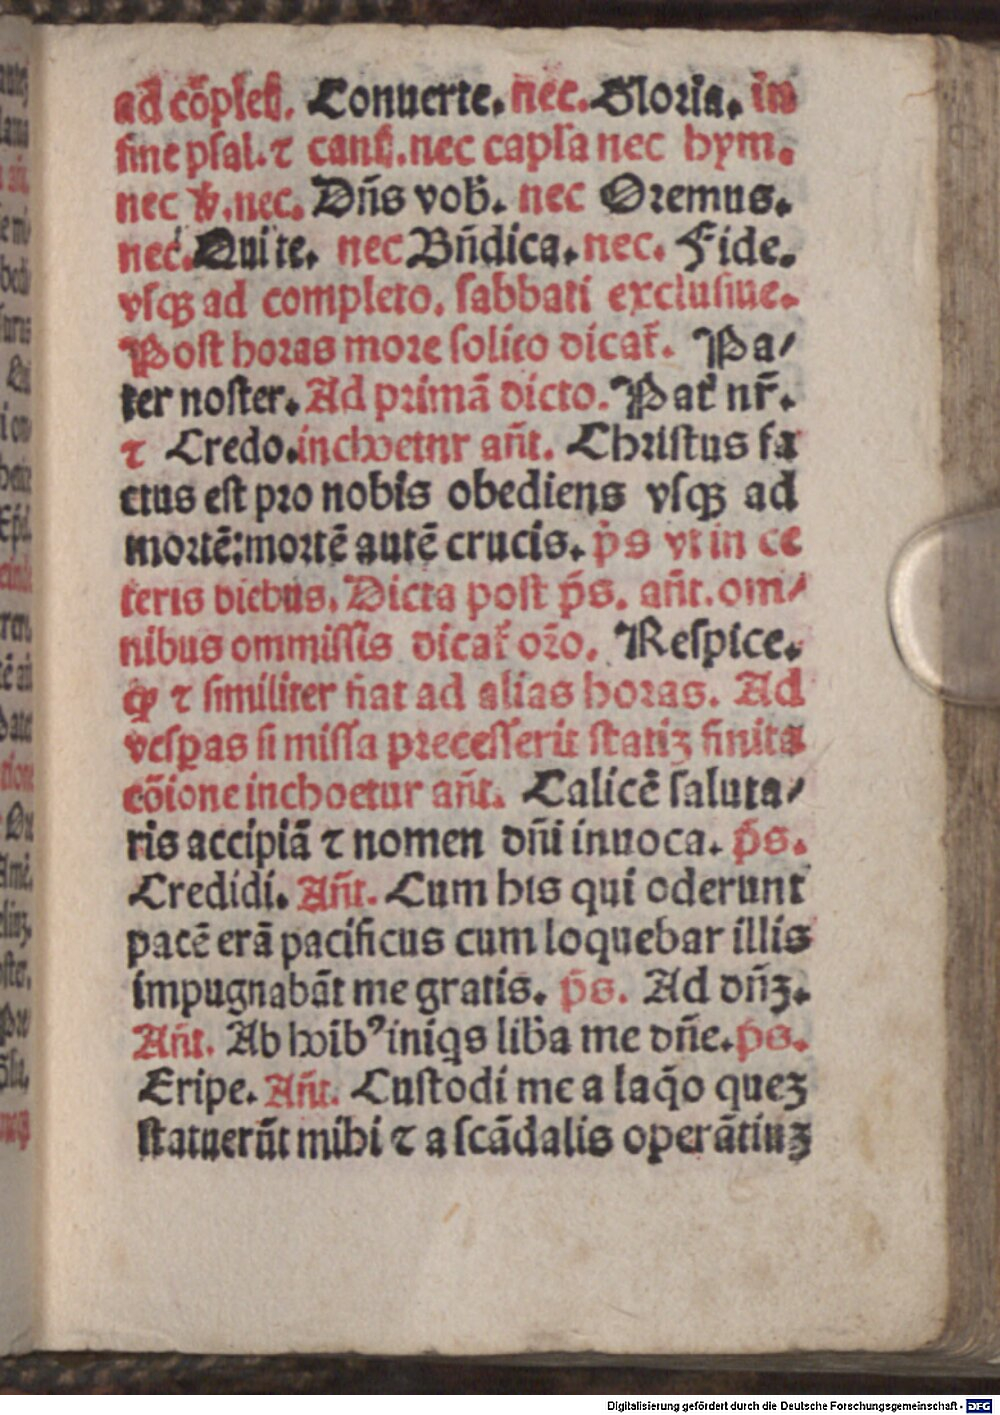 ad cōpleꝉ. Conuerte. nec. Gloria. in
fine psal. ⁊ canꝉ. nec capl'a nec hym.
nec ꝟ. nec. Dn̄s vob̄. nec Oremus.
nec. Qui te. nec Bn̄dica. nec. Fide.
vsqꝫ ad completo. sabbati exclusiue.
Post horas more solito dicat᷑. Pa/
ter noster. Ad primā dicto. Pat᷑ nr̄.
⁊ Credo. inchoetur an̄t. Christus fa
ctus est pro nobis obediens vsqꝫ ad
mortē: mortē autē crucis. p̄s vt in ce
teris diebus. Dicta post p̄s. an̄t. om/
nibus ommissis dicat᷑ or̄o. Respice.
ꝙ ⁊ similiter fiat ad alias horas. Ad
vesꝑas si missa precesserit statiꝫ finita
cōione inchoetur an̄t. Calicē saluta/
ris accipiā ⁊ nomen dn̄i inuoca. p̄s.
Credidi. An̄t. Cum his qui oderunt
pacē erā pacificus cum loquebar illis
impugnabāt me gratis. p̄s. Ad dn̄ꝫ.
An̄t. Ab hoibꝰ iniqs lib̄a me dn̄e. p̄s.
Eripe. An̄t. Custodi me a laq̄o queꝫ
statuerūt mihi ⁊ a scādalis operātiuꝫ
Digitalisierung gefördert durch die Deutsche Forschungsgemeinschaft - DFG